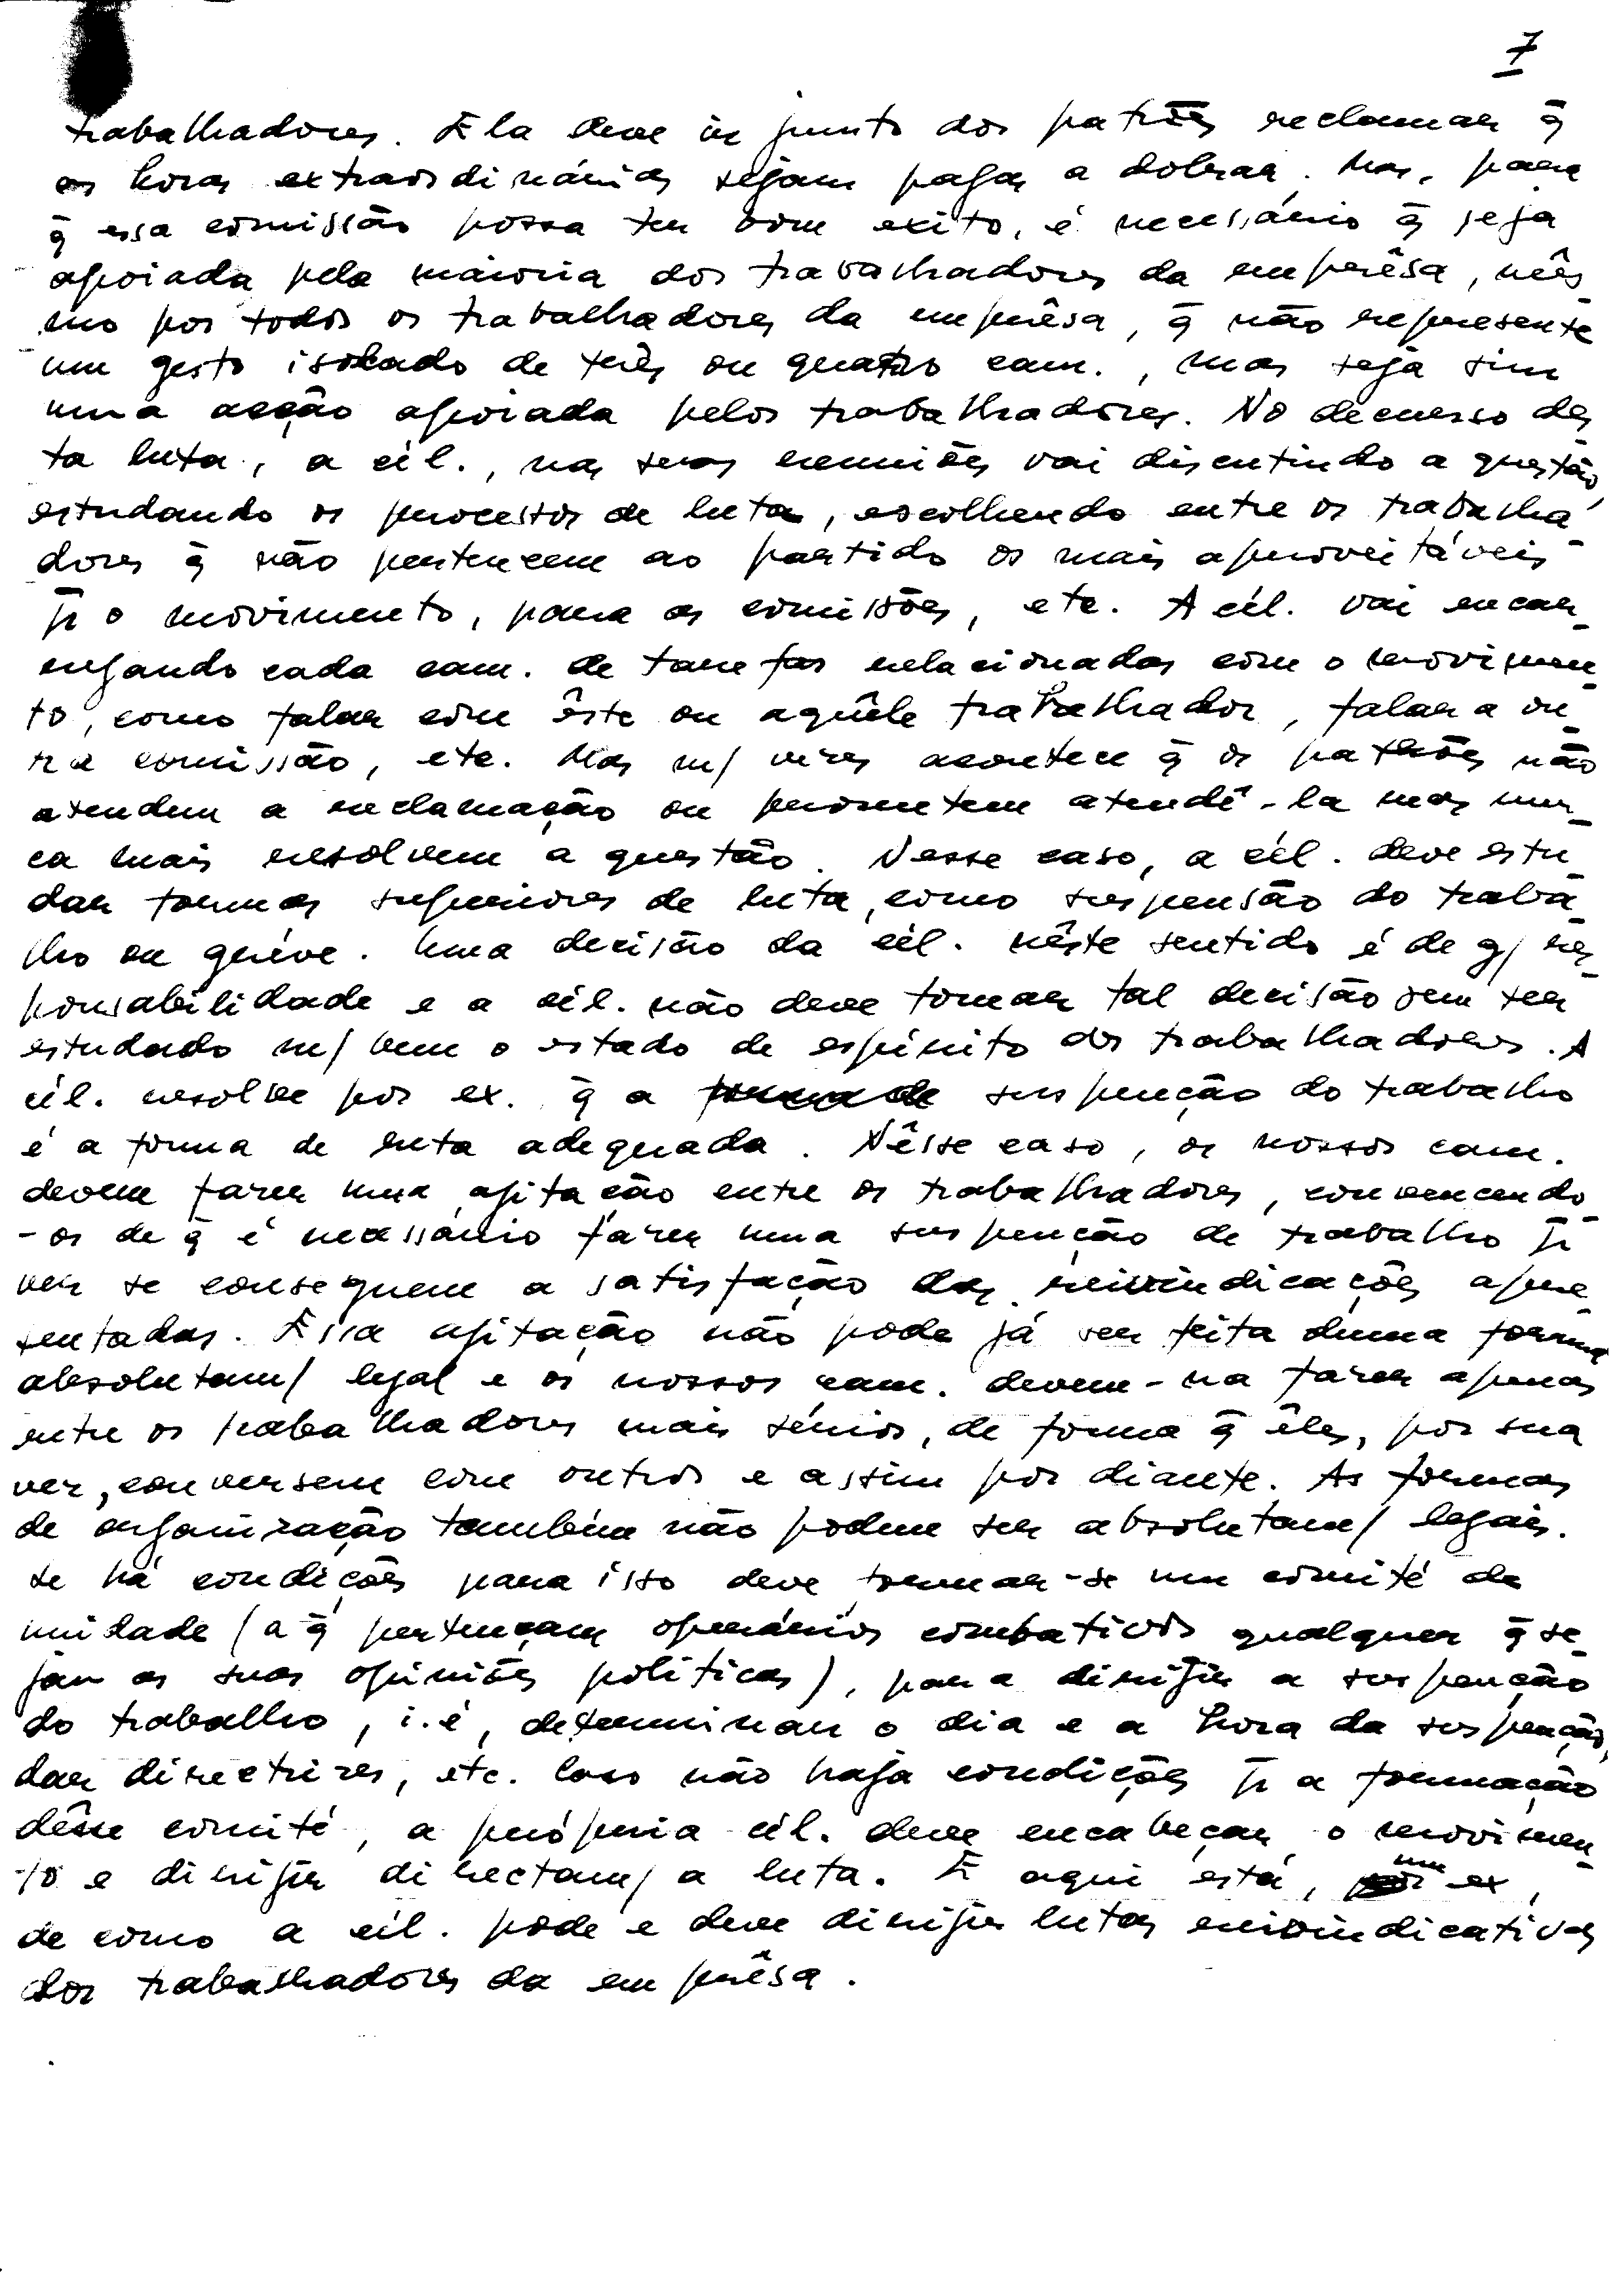 7
trabalhadores. Ela deve ir junto dos patrões reclamar q̄
as horas extraordinárias sejam pagas a dobrar. Mas, para
q̄ essa comissão possa ter bom exito, é necessário q̄ seja
apoiada pela maioria dos trabalhadores da emprêsa, mês_
mo por todos os trabalhadores da emprêsa, q̄ não represente
um gesto isolado de três ou quatro cam., mas seja sim
uma acção apoiada pelos trabalhadores. No decurso des_
ta luta, a cél., nas suas reuniões vai discutindo a questão,
estudando os processos de luta, escolhendo entre os trabalha_
dores q̄ não pertencem ao partido os mais aproveitáveis
p̄ o movimento, para as comissões, etc. A cél. vai encar_
regando cada cam. de tarefas relacionadas com o movimen_
to, como falar com êste ou aquêle trabalhador, falar a ou_
tra comissão, etc. Mas m/ vezes acontece q̄ os patrões não
atendem a reclamação ou prometem atendê-la mas nun_
ca mais resolvem a questão. Nesse caso, a cél. deve estu_
dar formas superiores de luta, como suspensão do traba_
lho ou greve. Uma decisão da cél. nêste sentido é de g/ res_
ponsabilidade e a cél. não deve tomar tal decisão sem ter
estudado m/ bem o estado de espírito dos trabalhadores. A
cél. resolve por ex. q̄ a suspenção do trabalho
é a forma de luta adequada. Nêsse caso, os nossos cam.
devem fazer uma agitação entre os trabalhadores, convencendo_
-os de q̄ é necessário fazer uma suspenção de trabalho p̄
ver se conseguem a satisfação das reivindicações apre_
sentadas. Essa agitação não pode já ser feita duma forma
absolutam/ legal e os nossos cam. devem-na fazer apenas
entre os trabalhadores mais sérios, de forma q̄ êles, por sua
vez, conversem com outros e assim por diante. As formas
de organização também não podem ser absolutam/ legais.
Se há condições para isso deve formar-se um comité de
unidade (a q̄ pertençam operários combativos qualquer q̄ se_
jam as suas opiniões políticas), para dirigir a suspenção
do trabalho, i.é, determinar o dia e a hora da suspenção,
dar directrizes, etc. Caso não haja condições p̄ a formação
dêsse comité, a própria cél. deve encabeçar o movimen_
to e dirigir directam/ a luta. E aqui está, um ex,
de como a cél. pode e deve dirigir lutas reivindicativas
dos trabalhadores da emprêsa.